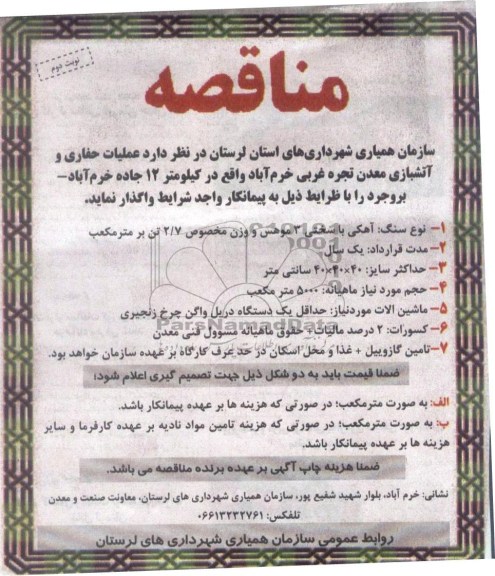 نوبت دوم
مناقصه
سازمان همیاری شهرداری‌های استان لرستان در نظر دارد عملیات حفاری و
آتشباری معدن تجره غربی خرم‌آباد واقع در کیلومتر ۱۲ جاده خرم‌آباد–
بروجرد را با ظرایط ذیل به پیمانکار واجد شرایط واگذار نماید.
۱– نوع سنگ: آهکی با سختی ۳ موهس و وزن مخصوص ۲/۷ تن بر مترمکعب
۲–مدت قرارداد: یک سال
۳– حداکثر سایز: ۴۰×۴۰×۴۰ سانتی متر
۴– حجم مورد نیاز ماهیانه: ۵۰۰۰ متر مکعب
۵– ماشین الات موردنیاز: حداقل یک دستگاه دریل واگن چرخ زنجیری
ParsNamadData
۶– کسورات: ۲ درصد مالیات + حقوق ماهیانه مسوول فنی معدن
۷–تامین گازوییل + غذا و محل اسکان در حد عرف کارگاه بر عهده سازمان خواهد بود.
ضمنا قیمت باید به دو شکل ذیل جهت تصمیم گیری اعلام شود:
الف: به صورت مترمکعب؛ در صورتی که هزینه ها بر عهده پیمانکار باشد.
ب: به صورت مترمکعب؛ در صورتی که هزینه تامین مواد نادیه بر عهده کارفرما و سایر
هزینه ها بر عهده پیمانکار باشد.
ضمنا هزینه چاپ آگهی بر عهده برنده مناقصه می باشد.
نشانی: خرم آباد، بلوار شهید شفیع پور، سازمان همیاری شهرداری های لرستان، معاونت صنعت و معدن
تلفکس: ۰۶۶۱۳۲۳۲۷۶۱
روابط عمومی سازمان همیاری شهرداری های لرستان